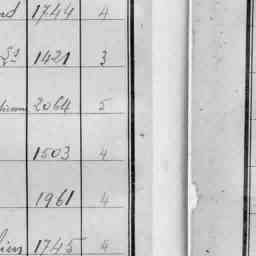 1744 4
1421 3
2064 5
1503 4
1961 4
1745 4